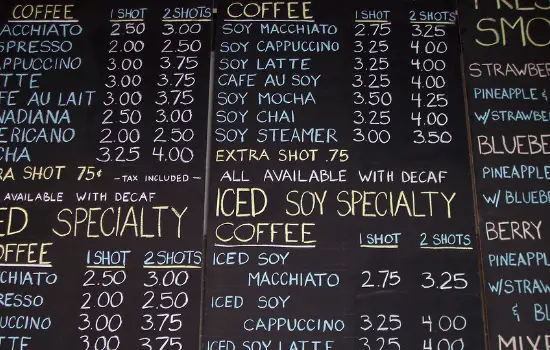 COFFEE 1 SHOT 2 SHOTS
ACCHIATO 2.50 3.00
SPRESSO 2.00 2.50
APPUCCINO 3.00 3.75
TTE 3.00 3.75
FE AU LAIT 3.00 3.75
NADIANA 2.50 3.00
ERICANO 2.00 2.50
CHA 3.25 4.00
RA SHOT 75¢ -TAX INCLUDED-
AVAILABLE WITH DECAF
ED SPECIALTY
OFFEE 1 SHOT 2 SHOTS
CHIATO 2.50 3.00
RESSO 2.00 2.50
UCCINO 3.00 3.75
3.00 3.75
COFFEE 1 SHOT 2 SHOTS
SOY MACCHIATO 2.75 3.25
SOY CAPPUCCINO 3.25 4.00
SOY LATTE 3.25 4.00
CAFE AU SOY 3.25 4.00
SOY MOCHA 3.50 4.25
SOY CHAI 3.25 4.00
SOY STEAMER 3.00 3.50
EXTRA SHOT .75
ALL AVAILABLE WITH DECAF
ICED SOY SPECIALTY
COFFEE 1 SHOT 2 SHOTS
ICED SOY
MACCHIATO 2.75 3.25
ICED SOY
CAPPUCCINO 3.25 4.00
ICED SOY LATTE 3.25 4.00
FRES
SMO
STRAWBER
PINEAPPLE &
W/STRAWBE
BLUEBE
PINEAPPLE
W/ BLUEB
BERRY
PINEAPPL
W/STRAW
& BL
MIXE